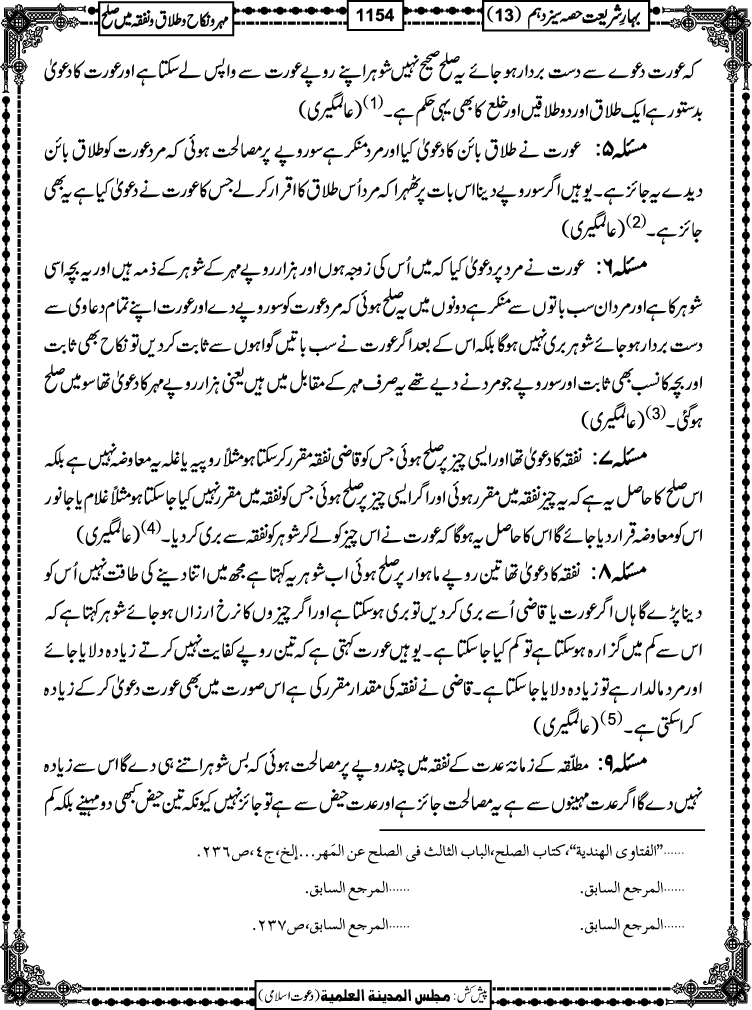 بہارِ شریعت حصہ سیزدہم (13)
1154
مہر و نکاح و طلاق و نفقہ میں صلح
کہ عورت دعوے سے دست بردار ہو جائے یہ صلح صحیح نہیں شوہر اپنے روپے عورت سے واپس لے سکتا ہے اور عورت کا دعویٰ
بدستور ہے ایک طلاق اور دو طلاقیں اور خلع کا بھی یہی حکم ہے۔(1) (عالمگیری)
مسئلہ ۵: عورت نے طلاق بائن کا دعویٰ کیا اور مرد منکر ہے سو روپے پر مصالحت ہوئی کہ مرد عورت کو طلاق بائن
دیدے یہ جائز ہے۔ یوہیں اگر سو روپے دینا اس بات پر ٹھہرا کہ مرد اُس طلاق کا اقرار کر لے جس کا عورت نے دعویٰ کیا ہے یہ بھی
جائز ہے۔(2) (عالمگیری)
مسئلہ ۶: عورت نے مرد پر دعویٰ کیا کہ میں اُس کی زوجہ ہوں اور ہزار روپے مہر کے شوہر کے ذمہ ہیں اور یہ بچہ اسی
شوہر کا ہے اور مرد ان سب باتوں سے منکر ہے دونوں میں یہ صلح ہوئی کہ مرد عورت کو سو روپے دے اور عورت اپنے تمام دعاوی سے
دست بردار ہو جائے شوہر بری نہیں ہوگا بلکہ اس کے بعد اگر عورت نے سب باتیں گواہوں سے ثابت کر دیں تو نکاح بھی ثابت
اور بچہ کا نسب بھی ثابت اور سو روپے جو مرد نے دیے تھے یہ صرف مہر کے مقابل میں ہیں یعنی ہزار روپے مہر کا دعویٰ تھا سو میں صلح
ہوگئی۔(3) (عالمگیری)
مسئلہ ۷: نفقہ کا دعویٰ تھا اور ایسی چیز پر صلح ہوئی جس کو قاضی نفقہ مقرر کر سکتا ہو مثلاً روپیہ یا غلہ یہ معاوضہ نہیں ہے بلکہ
اس صلح کا حاصل یہ ہے کہ یہ چیز نفقہ میں مقرر ہوئی اور اگر ایسی چیز پر صلح ہوئی جس کو نفقہ میں مقرر نہیں کیا جا سکتا ہو مثلاً غلام یا جانور
اس کو معاوضہ قرار دیا جائے گا اس کا حاصل یہ ہوگا کہ عورت نے اس چیز کو لے کر شوہر کو نفقہ سے بری کر دیا۔(4) (عالمگیری)
مسئلہ ۸: نفقہ کا دعویٰ تھا تین روپے ماہوار پر صلح ہوئی اب شوہر یہ کہتا ہے مجھ میں اتنا دینے کی طاقت نہیں اُس کو
دینا پڑے گا ہاں اگر عورت یا قاضی اُسے بری کر دیں تو بری ہو سکتا ہے اور اگر چیزوں کا نرخ ارزاں ہو جائے شوہر کہتا ہے کہ
اس سے کم میں گزارہ ہو سکتا ہے تو کم کیا جا سکتا ہے۔ یوہیں عورت کہتی ہے کہ تین روپے کفایت نہیں کرتے زیادہ دلایا جائے
اور مرد مالدار ہے تو زیادہ دلایا جا سکتا ہے۔ قاضی نے نفقہ کی مقدار مقرر کی ہے اس صورت میں بھی عورت دعویٰ کر کے زیادہ
کرا سکتی ہے۔(5) (عالمگیری)
مسئلہ ۹: مطلّقہ کے زمانۂ عدت کے نفقہ میں چند روپے پر مصالحت ہوئی کہ بس شوہر اتنے ہی دے گا اس سے زیادہ
نہیں دے گا اگر عدت مہینوں سے ہے یہ مصالحت جائز ہے اور عدت حیض سے ہے تو جائز نہیں کیونکہ تین حیض کبھی دو مہینے بلکہ کم
......"الفتاوی الهندية"، کتاب الصلح، الباب الثالث فی الصلح عن المَهر...إلخ، ج٤، ص٢٣٦.
......المرجع السابق. ......المرجع السابق.
......المرجع السابق. ......المرجع السابق، ص٢٣٧.
پیش کش: مجلس المدینة العلمیة (دعوت اسلامی)